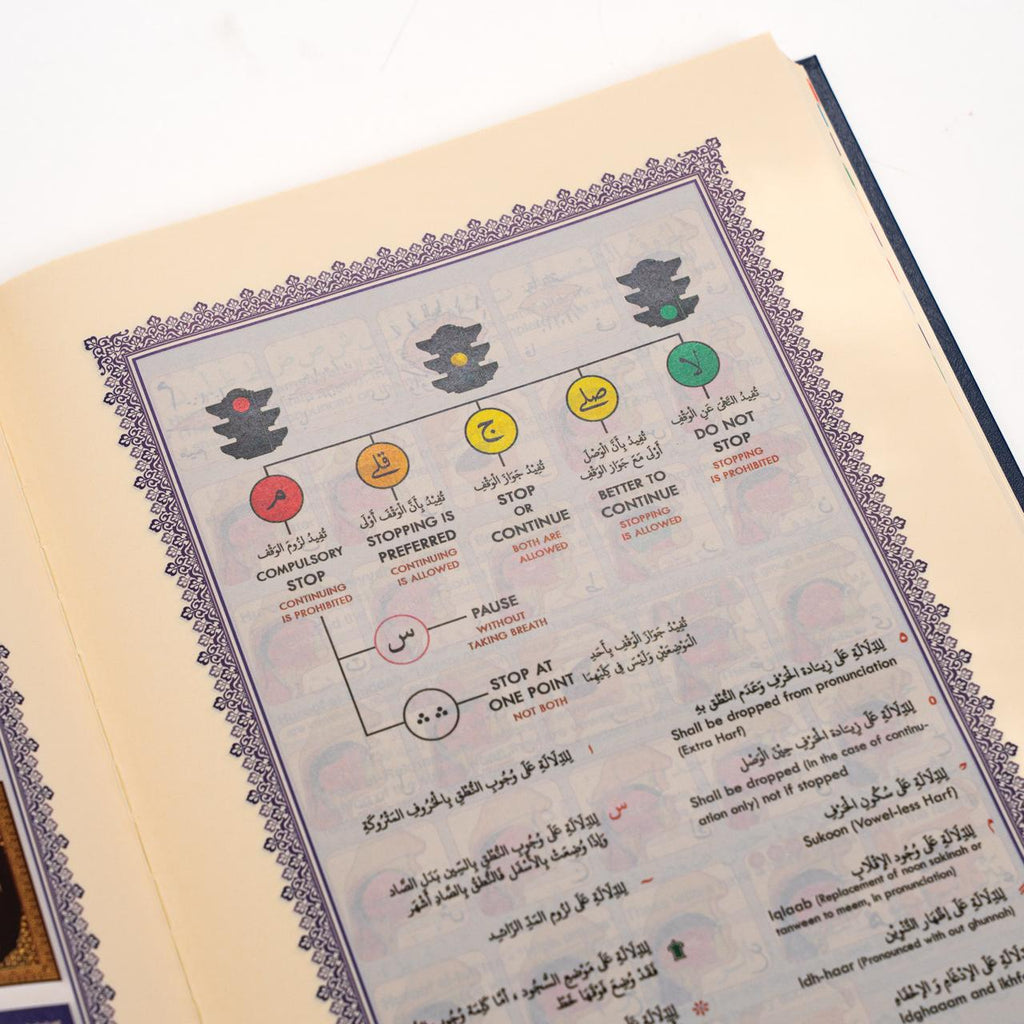 م
تُفِيدُ لُزُومَ الوَقْفِ
COMPULSORY
STOP
CONTINUING
IS PROHIBITED
قلى
تُفِيدُ بِأَنَّ الوَقْفَ أَوْلَى
STOPPING IS
PREFERRED
CONTINUING
IS ALLOWED
ج
تُفِيدُ جَوَازَ الوَقْفِ
STOP
OR
CONTINUE
BOTH ARE
ALLOWED
صلى
تُفِيدُ بِأَنَّ الوَصْلَ
أَوْلَى مَعَ جَوَازِ الوَقْفِ
BETTER TO
CONTINUE
STOPPING
IS ALLOWED
لا
تُفِيدُ النَّهْيَ عَنِ الوَقْفِ
DO NOT
STOP
STOPPING
IS PROHIBITED
س
PAUSE
WITHOUT
TAKING BREATH
STOP AT
ONE POINT
NOT BOTH
تُفِيدُ جَوَازَ الوَقْفِ بِأَحَدِ
المَوْضِعَيْنِ وَلَيْسَ فِي كِلَيْهِمَا
لِلدِّلَالَةِ عَلَى زِيَادَةِ الحَرْفِ وَعَدَمِ النُّطْقِ بِهِ
Shall be dropped from pronunciation
(Extra Harf)
لِلدِّلَالَةِ عَلَى زِيَادَةِ الحَرْفِ حِيْنَ الْوَصْلِ
Shall be dropped (In the case of continu-
ation only) not if stopped
لِلدِّلَالَةِ عَلَى سُكُونِ الحَرْفِ
Sukoon (Vowel-less Harf)
لِلدِّلَالَةِ عَلَى وُجُودِ الإِقْلَابِ
Iqlaab (Replacement of noon sakinah or
tanween to meem, in pronunciation)
لِلدِّلَالَةِ عَلَى إِظْهَارِ التَّنْوِينِ
Idh-haar (Pronounced with our ghunnah)
لِلدِّلَالَةِ عَلَى الإِدْغَامِ وَ الإِخْفَاءِ
Idghaaam and Ikhf
لِلدِّلَالَةِ عَلَى وُجُوبِ النُّطْقِ بِالحُرُوفِ المَتْرُوكَةِ
س لِلدِّلَالَةِ عَلَى وُجُوبِ النُّطْقِ بِالسِّينِ بَدَلَ الصَّادِ
وَإِذَا وُضِعَتْ بِالأَسْفَلِ فَالنُّطْقُ بِالصَّادِ أَشْهَر
لِلدِّلَالَةِ عَلَى لُزُومِ المَدِّ الزَّائِدِ
لِلدِّلَالَةِ عَلَى مَوْضِعِ السُّجُودِ ، أَمَّا كَلِمَةُ وُجُوبِ
فَقَدْ وُضِعَ فَوْقَهَا خَطٌّ
لِلدِّلَالَةِ عَلَى